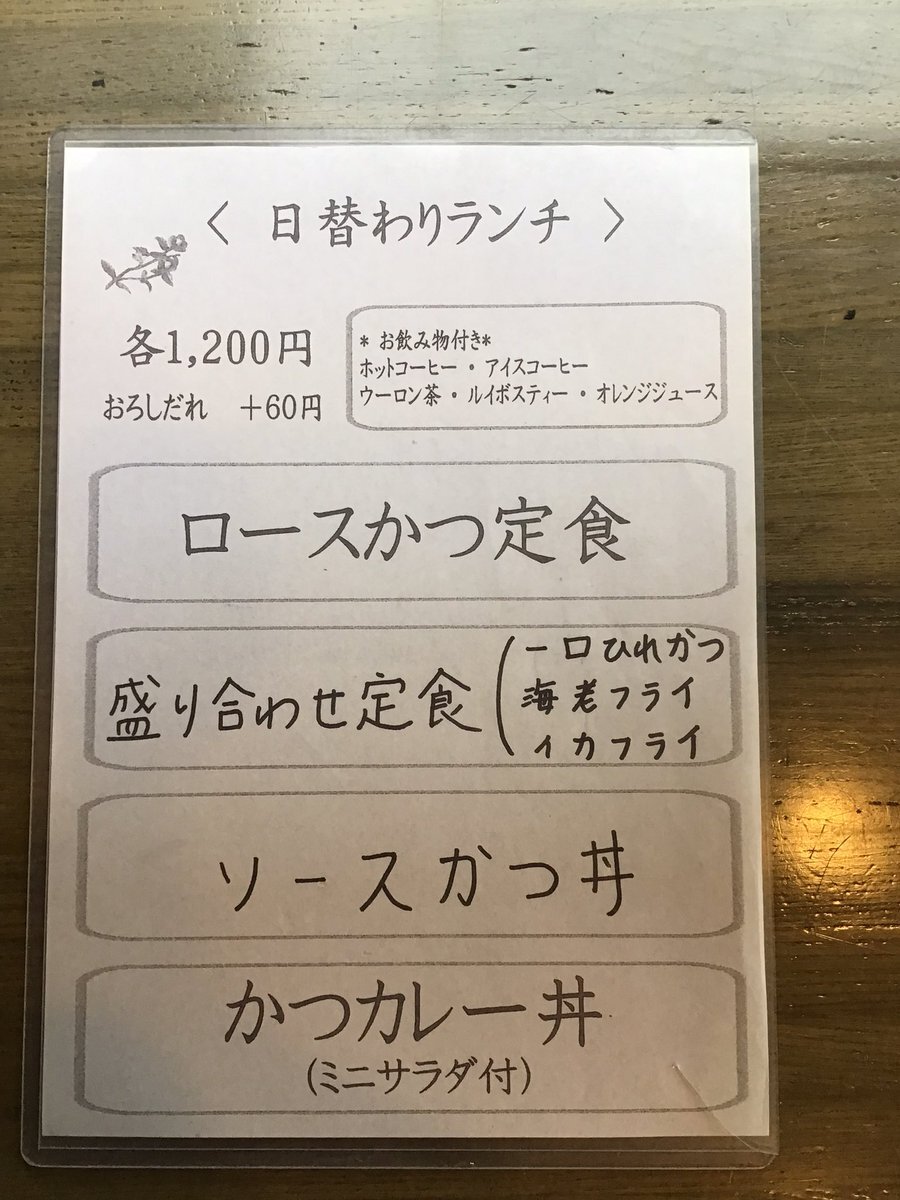 〈 日替わりランチ 〉
各1,200円
おろしだれ ＋60円
* お飲み物付き*
ホットコーヒー・アイスコーヒー
ウーロン茶・ルイボスティー・オレンジジュース
ロースかつ定食
盛り合わせ定食
(一口ひれかつ
海老フライ
イカフライ
ソースかつ丼
かつカレー丼
(ミニサラダ付)